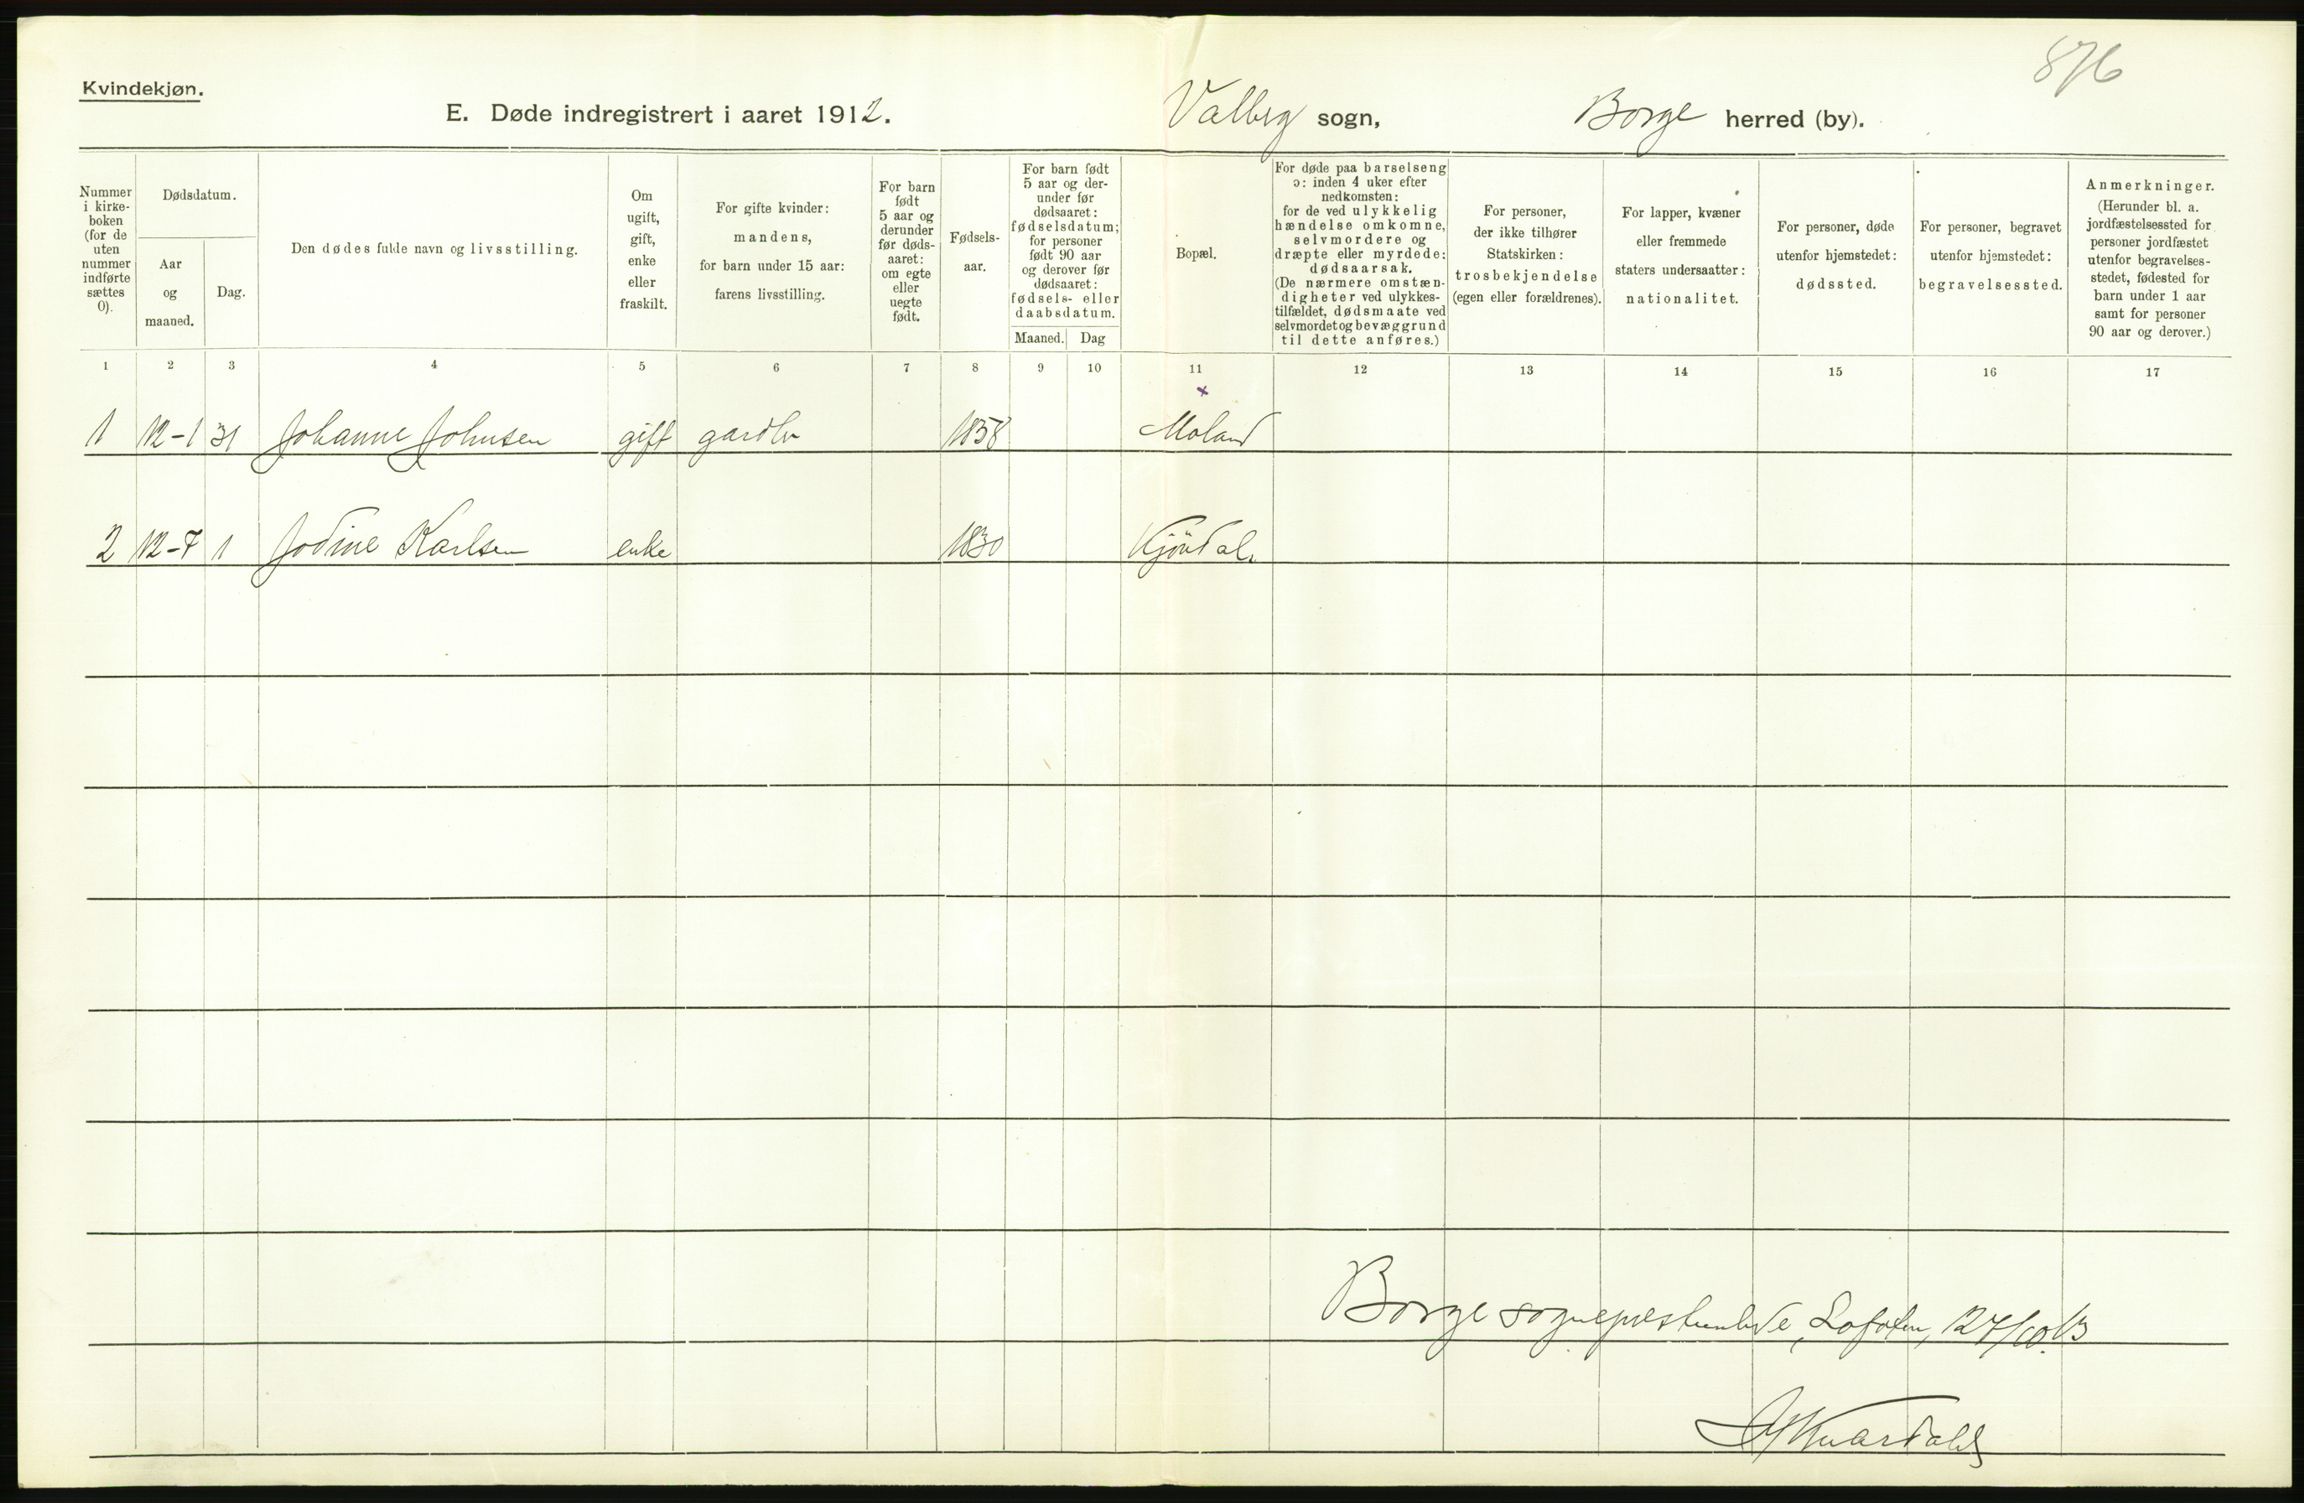 876
Kvindekjøn.
E. Døde indregistrert i aaret 1912. Valberg sogn, Borge herred (by).
Nummer i kirke-boken (for de uten nummer indførte sættes 0).
Dødsdatum.
Aar og maaned.
Dag.
Den dødes fulde navn og livsstilling.
Om ugift, gift, enke eller fraskilt.
For gifte kvinder: mandens, for barn under 15 aar: farens livsstilling.
For barn født 5 aar og derunder før døds-aaret: om egte eller uegte født.
Fødsels-aar.
For barn født 5 aar og der-under før dødsaaret: fødselsdatum; for personer født 90 aar og derover før dødsaaret: fødsels- eller daabsdatum.
Maaned. Dag
Bopæl.
For døde paa barselseng ɔ: inden 4 uker efter nedkomsten: for de ved ulykkelig hændelse omkomne, selvmordere og dræpte eller myrdede: dødsaarsak. (De nærmere omstæn-digheter ved ulykkes-tilfældet, dødsmaate ved selvmordet og bevæggrund til dette anføres.)
For personer, der ikke tilhører Statskirken: trosbekjendelse (egen eller forældrenes).
For lapper, kvæner eller fremmede staters undersaatter: nationalitet.
For personer, døde utenfor hjemstedet: dødssted.
For personer, begravet utenfor hjemstedet: begravelsessted.
Anmerkninger. (Herunder bl. a. jordfæstelsessted for personer jordfæstet utenfor begravelses-stedet, fødested for barn under 1 aar samt for personer 90 aar og derover.)
1 2 3 4 5 6 7 8 9 10 11 12 13 14 15 16 17
1 12-1 31 Johanne Johnsen gift gardbr 1858 Moland
2 12-7 1 Jodine Karlsen enke 1830
Borge sogneprestembede, Lofoten, 27/10.13